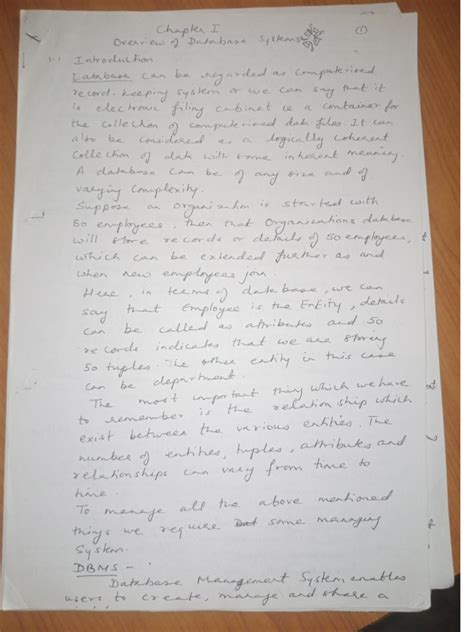 Chapter I
①
Overview of Database Systems
1.1 Introduction
Database can be regarded as computerised
record-keeping system or we can say that it
is electronic filing cabinet ie a container for
the collection of computerised data files. It can
also be considered as a logically coherent
collection of data with some inherent meaning.
A database can be of any size and of
varying complexity.
Suppose an organization is started with
50 employees, then that Organisations database
will store records or details of 50 employees,
which can be extended further as and
when new employees join.
Here, in terms of database, we can
say that Employee is the Entity, details
can be called as attributes and 50
records indicates that we are storing
50 tuples. The other entity in this case
can be department.
The most important thing which we have
to remember is the relationship which
exist between the various entities. The
number of entities, tuples, attributes and
relationships can vary from time to
time.
To manage all the above mentioned
things we require some managing
System.
DBMS -
Database Management System enables
users to create, manage and share a